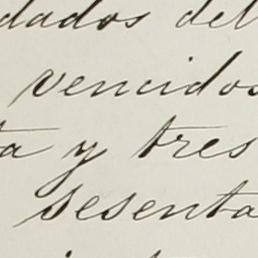 dados del
vencidos
ta y tres
sesenta